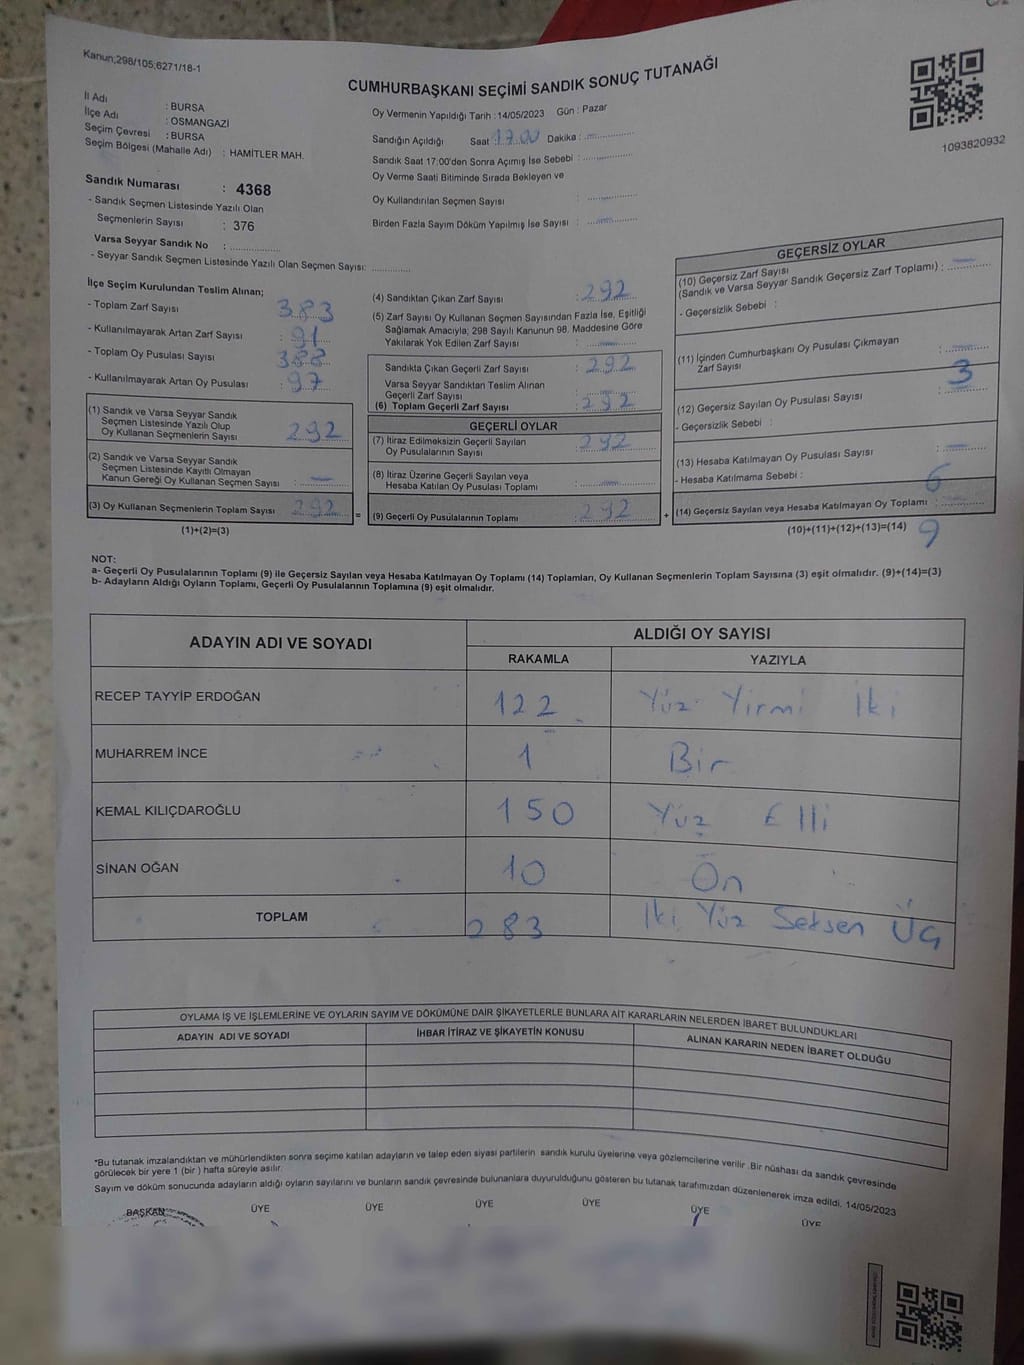 Kanun;298/105;6271/18-1
CUMHURBAŞKANI SEÇİMİ SANDIK SONUÇ TUTANAĞI
1093820932
İl Adı : BURSA
İlçe Adı : OSMANGAZİ
Seçim Çevresi : BURSA
Seçim Bölgesi (Mahalle Adı) : HAMİTLER MAH.
Sandık Numarası : 4368
- Sandık Seçmen Listesinde Yazılı Olan
Seçmenlerin Sayısı : 376
Varsa Seyyar Sandık No : ..............
- Seyyar Sandık Seçmen Listesinde Yazılı Olan Seçmen Sayısı: ............
Oy Vermenin Yapıldığı Tarih : 14/05/2023 Gün : Pazar
Sandığın Açıldığı Saat : 17.00 Dakika :
Sandık Saat 17:00'den Sonra Açımış İse Sebebi :
Oy Verme Saati Bitiminde Sırada Bekleyen ve
Oy Kullandırılan Seçmen Sayısı :
Birden Fazla Sayım Döküm Yapılmış İse Sayısı :
İlçe Seçim Kurulundan Teslim Alınan;
- Toplam Zarf Sayısı : 383
- Kullanılmayarak Artan Zarf Sayısı : 91
- Toplam Oy Pusulası Sayısı : 388
- Kullanılmayarak Artan Oy Pusulası : 97
(1) Sandık ve Varsa Seyyar Sandık
Seçmen Listesinde Yazılı Olup
Oy Kullanan Seçmenlerin Sayısı : 292
(2) Sandık ve Varsa Seyyar Sandık
Seçmen Listesinde Kayıtlı Olmayan
Kanun Gereği Oy Kullanan Seçmen Sayısı : —
(3) Oy Kullanan Seçmenlerin Toplam Sayısı : 292 =
(1)+(2)=(3)
(4) Sandıktan Çıkan Zarf Sayısı : 292
(5) Zarf Sayısı Oy Kullanan Seçmen Sayısından Fazla İse, Eşitliği
Sağlamak Amacıyla; 298 Sayılı Kanunun 98. Maddesine Göre
Yakılarak Yok Edilen Zarf Sayısı : —
Sandıkta Çıkan Geçerli Zarf Sayısı : 292
Varsa Seyyar Sandıktan Teslim Alınan
Geçerli Zarf Sayısı :
(6) Toplam Geçerli Zarf Sayısı : 292
GEÇERLİ OYLAR
(7) İtiraz Edilmeksizin Geçerli Sayılan
Oy Pusulalarının Sayısı : 292
(8) İtiraz Üzerine Geçerli Sayılan veya
Hesaba Katılan Oy Pusulası Toplamı : —
(9) Geçerli Oy Pusulalarının Toplamı : 292 +
GEÇERSİZ OYLAR
(10) Geçersiz Zarf Sayısı
(Sandık ve Varsa Seyyar Sandık Geçersiz Zarf Toplamı) : —
- Geçersizlik Sebebi :
(11) İçinden Cumhurbaşkanı Oy Pusulası Çıkmayan
Zarf Sayısı : —
3
(12) Geçersiz Sayılan Oy Pusulası Sayısı :
- Geçersizlik Sebebi :
(13) Hesaba Katılmayan Oy Pusulası Sayısı : —
- Hesaba Katılmama Sebebi :
6
(14) Geçersiz Sayılan veya Hesaba Katılmayan Oy Toplamı :
(10)+(11)+(12)+(13)=(14) 9
NOT:
a- Geçerli Oy Pusulalarının Toplamı (9) ile Geçersiz Sayılan veya Hesaba Katılmayan Oy Toplamı (14) Toplamları, Oy Kullanan Seçmenlerin Toplam Sayısına (3) eşit olmalıdır. (9)+(14)=(3)
b- Adayların Aldığı Oyların Toplamı, Geçerli Oy Pusulalarının Toplamına (9) eşit olmalıdır.
ADAYIN ADI VE SOYADI ALDIĞI OY SAYISI
RAKAMLA YAZIYLA
RECEP TAYYİP ERDOĞAN 122 Yüz Yirmi İki
MUHARREM İNCE 1 Bir
KEMAL KILIÇDAROĞLU 150 Yüz Elli
SİNAN OĞAN 10 On
TOPLAM 283 İki Yüz Seksen Üç
OYLAMA İŞ VE İŞLEMLERİNE VE OYLARIN SAYIM VE DÖKÜMÜNE DAİR ŞİKAYETLERLE BUNLARA AİT KARARLARIN NELERDEN İBARET BULUNDUKLARI
ADAYIN ADI VE SOYADI İHBAR İTİRAZ VE ŞİKAYETİN KONUSU ALINAN KARARIN NEDEN İBARET OLDUĞU
*Bu tutanak imzalandıktan ve mühürlendikten sonra seçime katılan adayların ve talep eden siyasi partilerin sandık kurulu üyelerine veya gözlemcilerine verilir .Bir nüshası da sandık çevresinde
görülecek bir yere 1 (bir ) hafta süreyle asılır.
Sayım ve döküm sonucunda adayların aldığı oyların sayılarını ve bunların sandık çevresinde bulunanlara duyurulduğunu gösteren bu tutanak tarafımızdan düzenlenerek imza edildi. 14/05/2023
BAŞKAN ÜYE ÜYE ÜYE ÜYE ÜYE ÜYE